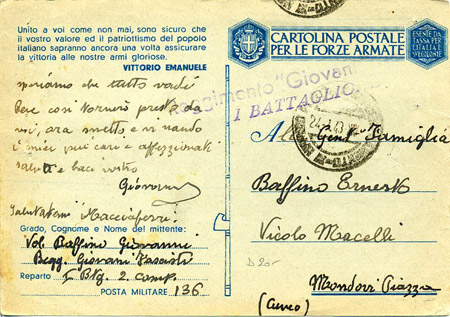 Unito a voi come non mai, sono sicuro che
il vostro valore ed il patriottismo del popolo
italiano sapranno ancora una volta assicurare
la vittoria alle nostre armi gloriose.
VITTORIO EMANUELE
speriamo che tutto vada
bene così tornerò presto da
voi, ora smetto e vi mando
i miei più cari e affezzionati
saluti e baci vostro
Giovanni
Salutatemi Macciaferri
Grado, Cognome e Nome del mittente:
Vol. Baffino Giovanni
Regg. Giovani Fascisti
Reparto I Btg. 2 Comp.
POSTA MILITARE 136
CARTOLINA POSTALE
PER LE FORZE ARMATE
ESENTE DA
TASSA PER
L'ITALIA E
COLONIE
Reggimento "Giovani
I BATTAGLIO
24.1.43
Alla Gent. Famiglia
Baffino Ernesto
Vicolo Macelli
D 20-
Mondovì Piazza
(Cuneo)